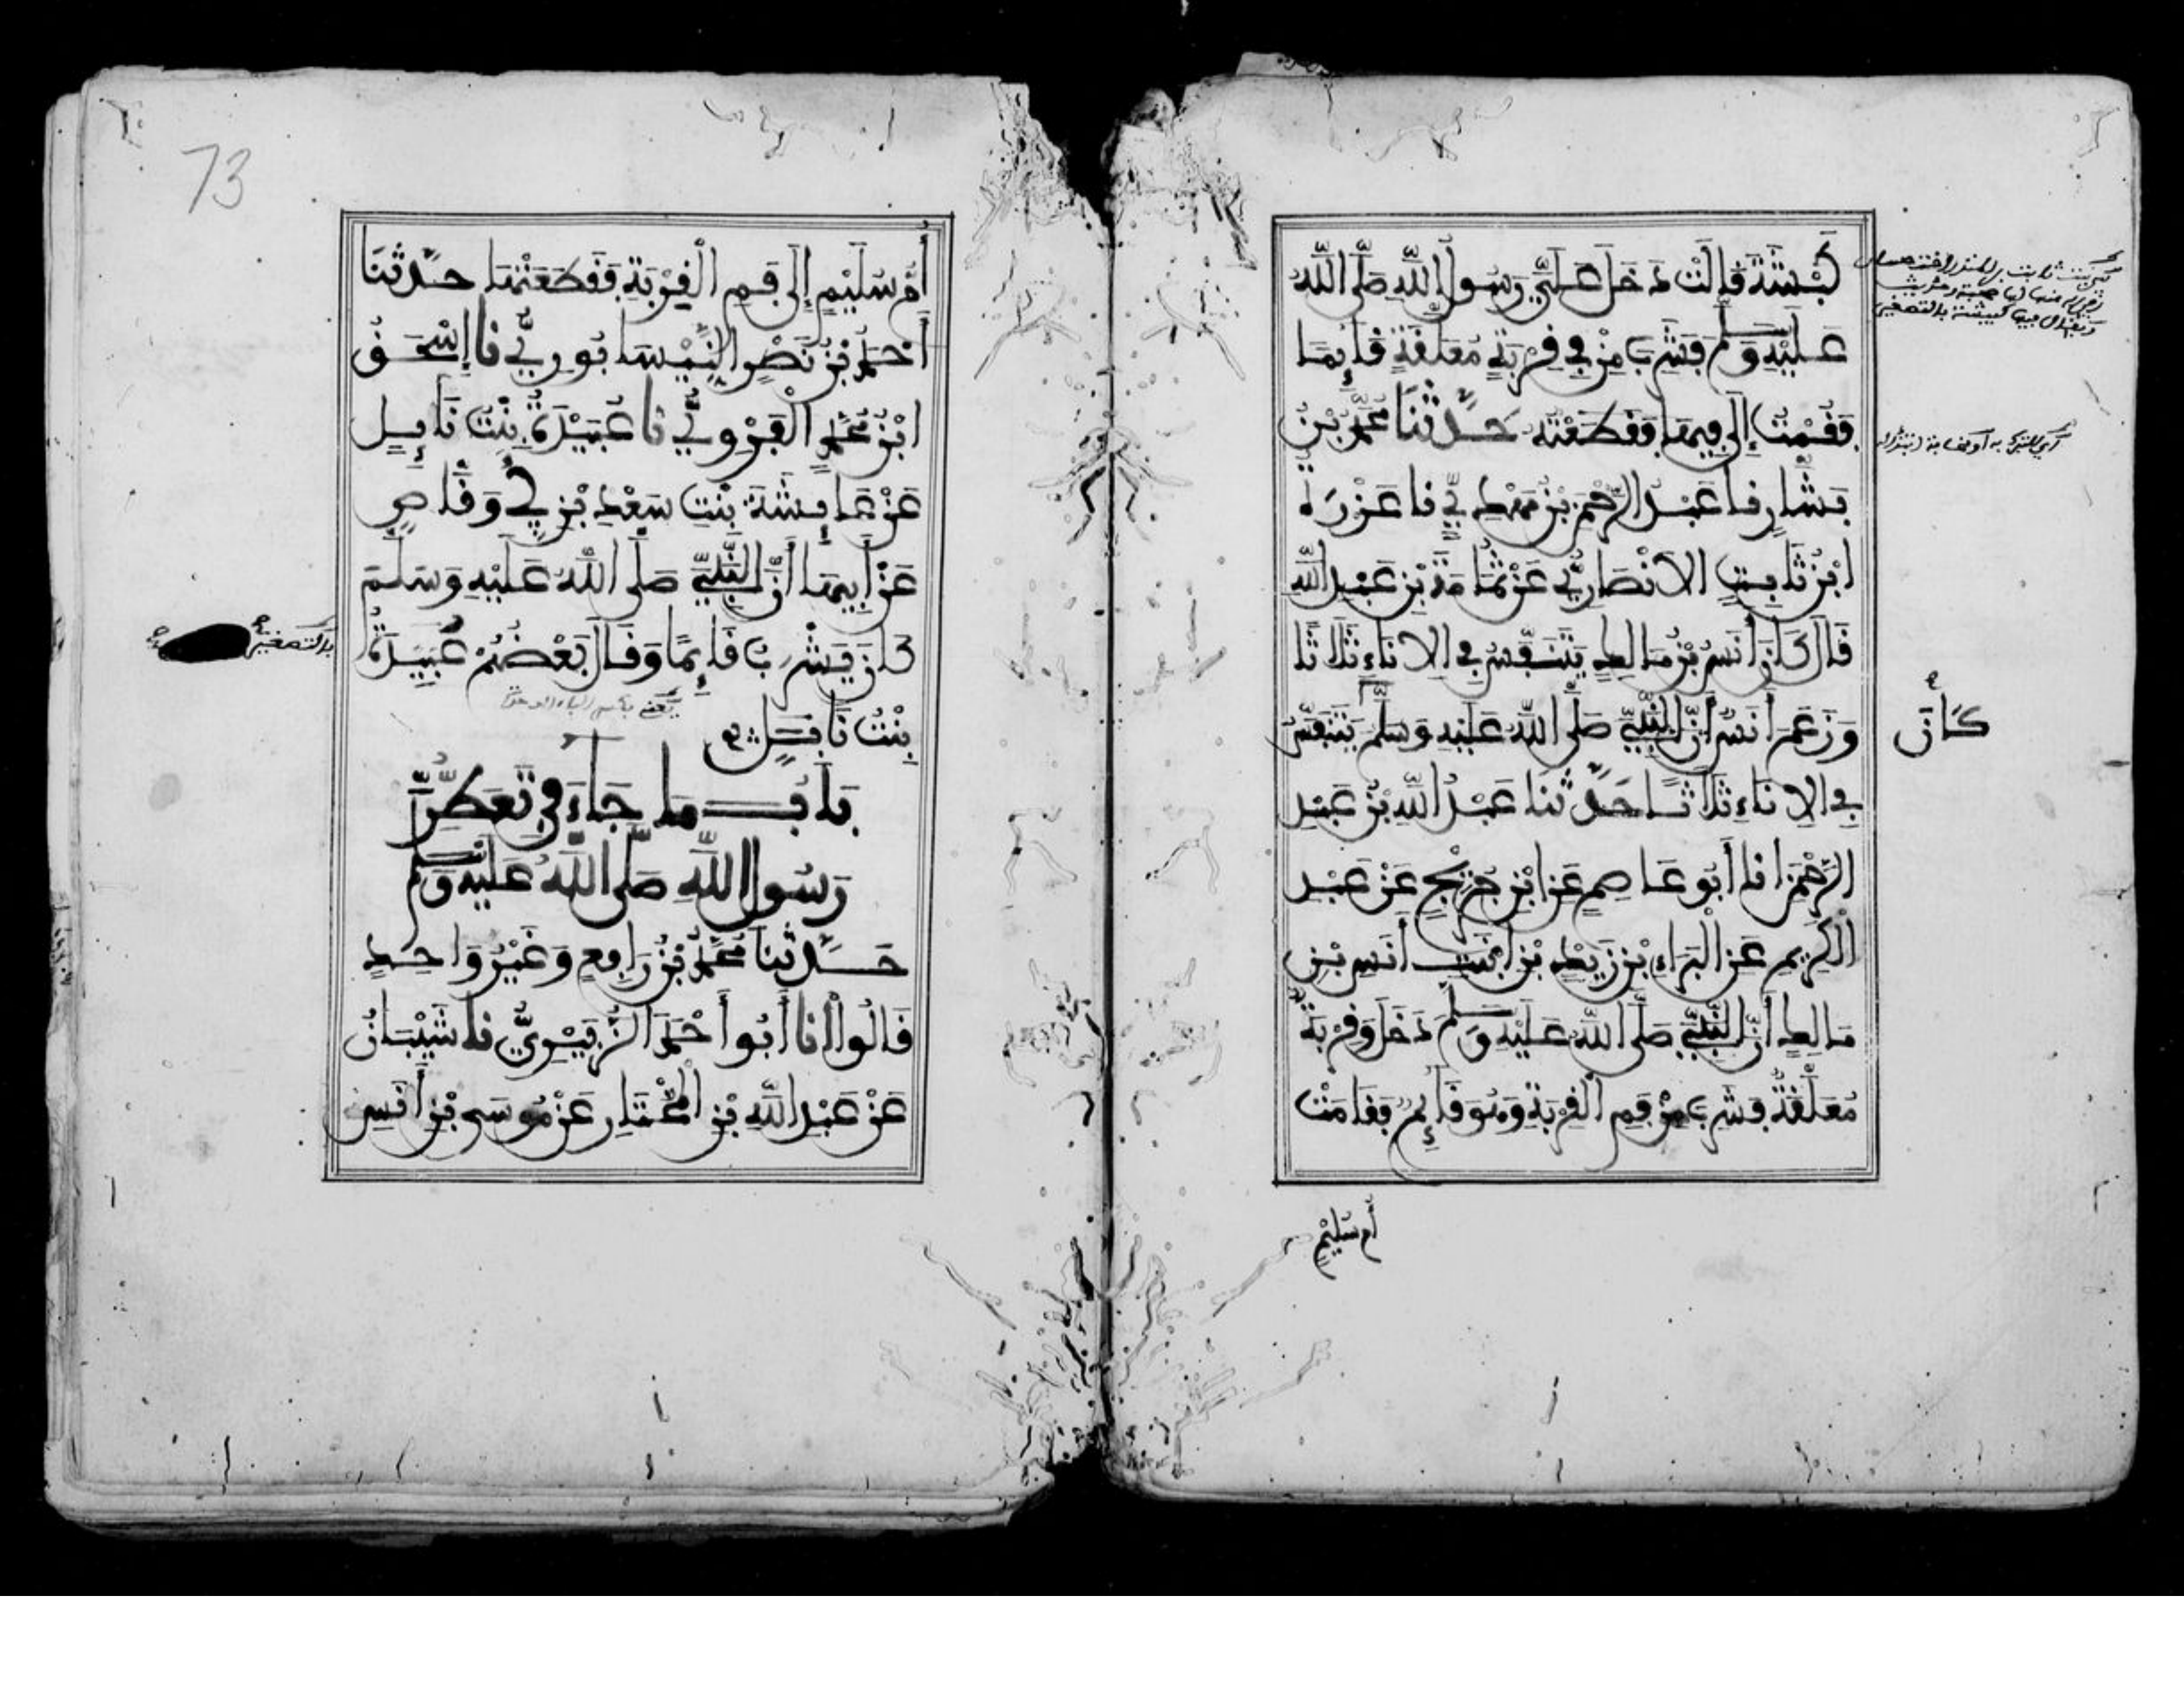 كَبْشَةَ قَالَتْ دَخَلَ عَلَيَّ رَسُولُ اللَّهِ صَلَّى اللَّهُ
عَلَيْهِ وَسَلَّمَ فَشَرِبَ مِنْ فِي قِرْبَةٍ مُعَلَّقَةٍ قَائِمًا
فَقُمْتُ إِلَى فِيهَا فَقَطَعْتُهُ حَدَّثَنَا مُحَمَّدُ بْنُ
بَشَّارٍ نا عَبْدُ الرَّحْمَنِ بْنُ مَهْدِيٍّ نا عَزْرَةُ
ابْنُ ثَابِتٍ الْأَنْصَارِيُّ عَنْ ثُمَامَةَ بْنِ عَبْدِ اللَّهِ
قَالَ كَانَ أَنَسُ بْنُ مَالِكٍ يَتَنَفَّسُ فِي الْإِنَاءِ ثَلَاثًا
وَزَعَمَ أَنَسٌ أَنَّ النَّبِيَّ صَلَّى اللَّهُ عَلَيْهِ وَسَلَّمَ يَتَنَفَّسُ
كَانَ
فِي الْإِنَاءِ ثَلَاثًا حَدَّثَنَا عَبْدُ اللَّهِ بْنُ عَبْدِ
الرَّحْمَنِ انا أَبُو عَاصِمٍ عَنِ ابْنِ جُرَيْجٍ عَنْ عَبْدِ
الْكَرِيمِ عَنِ الْبَرَاءِ بْنِ زَيْدٍ بْنِ ابْنَتِ أَنَسِ بْنِ
مَالِكٍ أَنَّ النَّبِيَّ صَلَّى اللَّهُ عَلَيْهِ وَسَلَّمَ دَخَلَ وَقِرْبَةٌ
مُعَلَّقَةٌ فَشَرِبَ مِنْ فَمِ الْقِرْبَةِ وَهُوَ قَائِمٌ فَقَامَتْ
أُمُّ سُلَيْمٍ
73
أُمُّ سُلَيْمٍ إِلَى فَمِ الْقِرْبَةِ فَقَطَعَتْهَا حَدَّثَنَا
أَحْمَدُ بْنُ نَصْرٍ النَّيْسَابُورِيُّ نا إِسْحَقُ
ابْنُ مُحَمَّدٍ الْفَرْوِيُّ نا عُبَيْدَةُ بِنْتُ نَابِلٍ
عَنْ عَائِشَةَ بِنْتِ سَعْدِ بْنِ أَبِي وَقَّاصٍ
عَنْ أَبِيهَا أَنَّ النَّبِيَّ صَلَّى اللَّهُ عَلَيْهِ وَسَلَّمَ
كَانَ يَشْرَبُ قَائِمًا وَقَالَ بَعْضُهُمْ عُبَيْدَةُ
بالتصغير
بِنْتُ نَابِلٍ
بَابُ مَا جَاءَ فِي تَعَطُّرِ
رَسُولِ اللَّهِ صَلَّى اللَّهُ عَلَيْهِ وَسَلَّمَ
حَدَّثَنَا مُحَمَّدُ بْنُ رَافِعٍ وَغَيْرُ وَاحِدٍ
قَالُوا انا أَبُوا أَحْمَدَ الزُّبَيْرِيُّ نا شَيْبَانُ
عَنْ عَبْدِ اللَّهِ بْنِ الْمُخْتَارِ عَنْ مُوسَى بْنِ أَنَسٍ